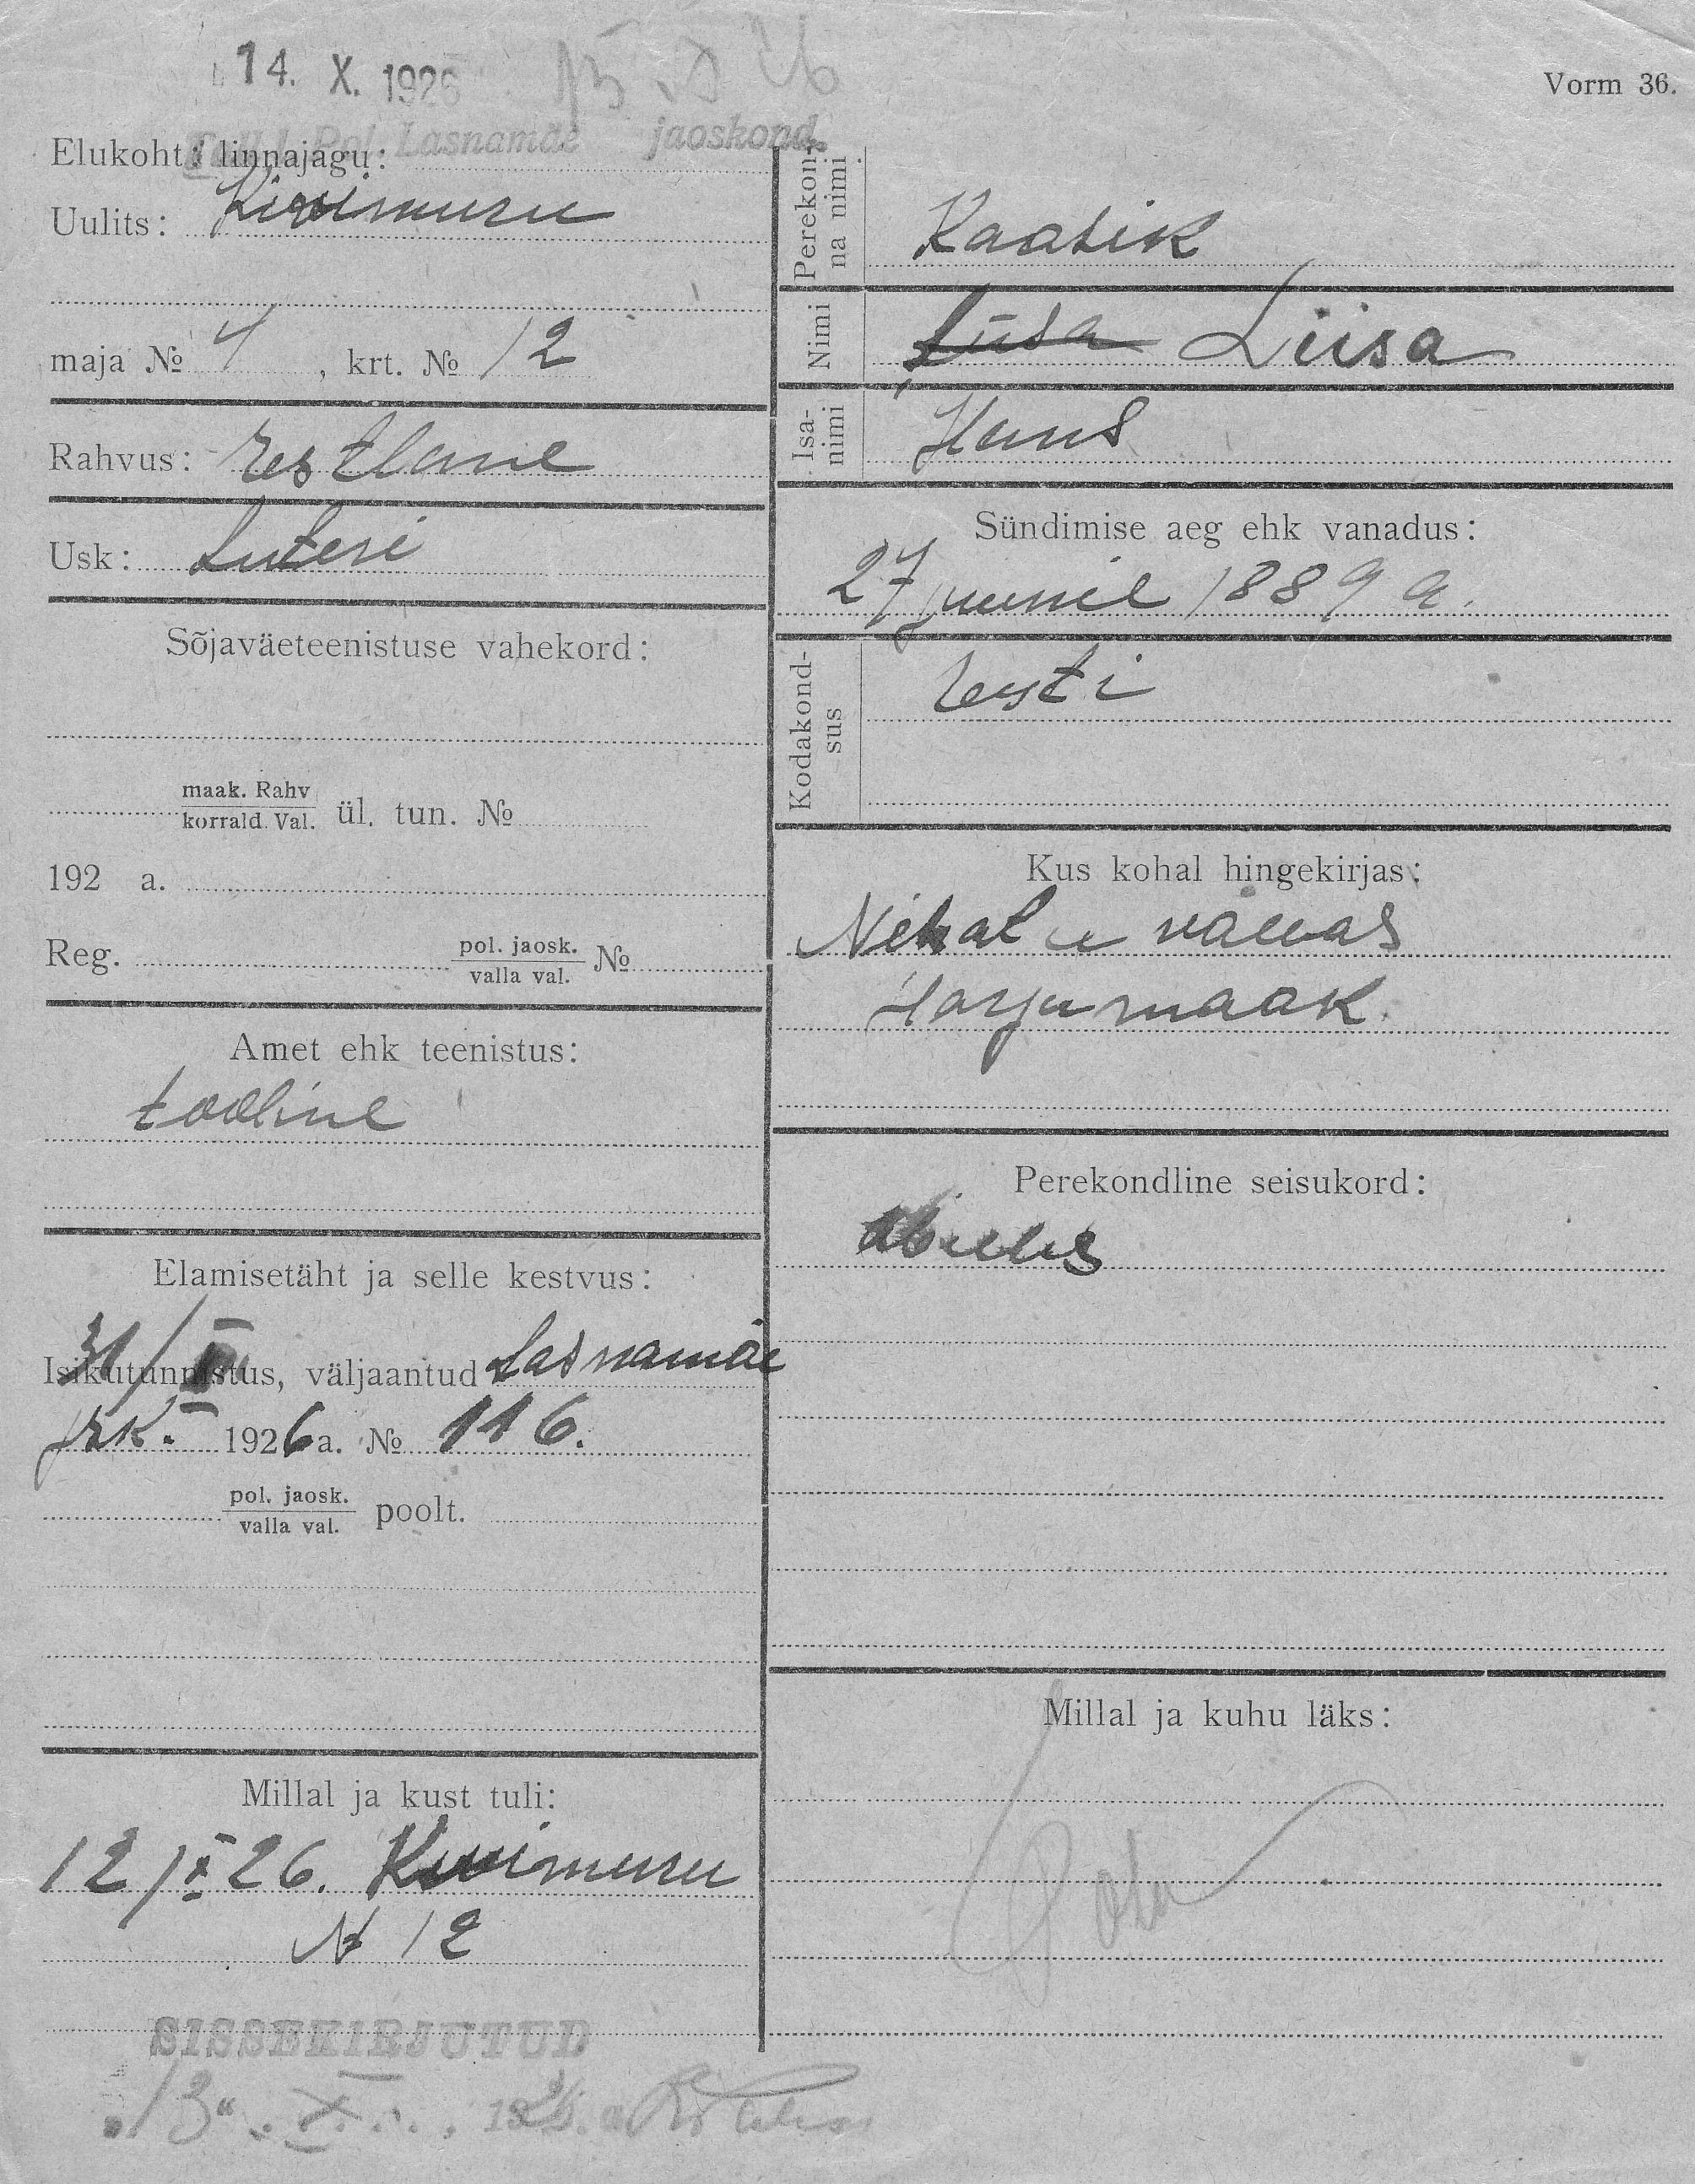 14. X. 1926
Vorm 36.
Tall. Pol. Lasnamäe jaoskond.
Elukoht: linnajagu:
Uulits: Kivimuru
maja № 4, krt. № 12
Rahvus: eestlane
Usk: Luteri
Sõjaväeteenistuse vahekord:
maak. Rahv
korrald. Val. ül. tun. №
192 a.
Reg. pol. jaosk. №
valla val.
Amet ehk teenistus:
tööline
Elamisetäht ja selle kestvus:
31/
Isikutunnistus, väljaantud Lasnamäe
jsk. 1926 a. № 116.
pol. jaosk.
valla val. poolt.
Millal ja kust tuli:
12/X 26. Kivimuru
N 12
SISSEKIRJUTUD
"13". X. 1926. a.
Perekon-
na nimi
Kaasik
Nimi
Liisa Liisa
Isa-
nimi
Hans
Sündimise aeg ehk vanadus:
27 juunil 1889 a.
Kodakond-
sus
Eesti
Kus kohal hingekirjas:
Nehatu vallas
Harjumaak.
Perekondline seisukord:
abielus
Millal ja kuhu läks: